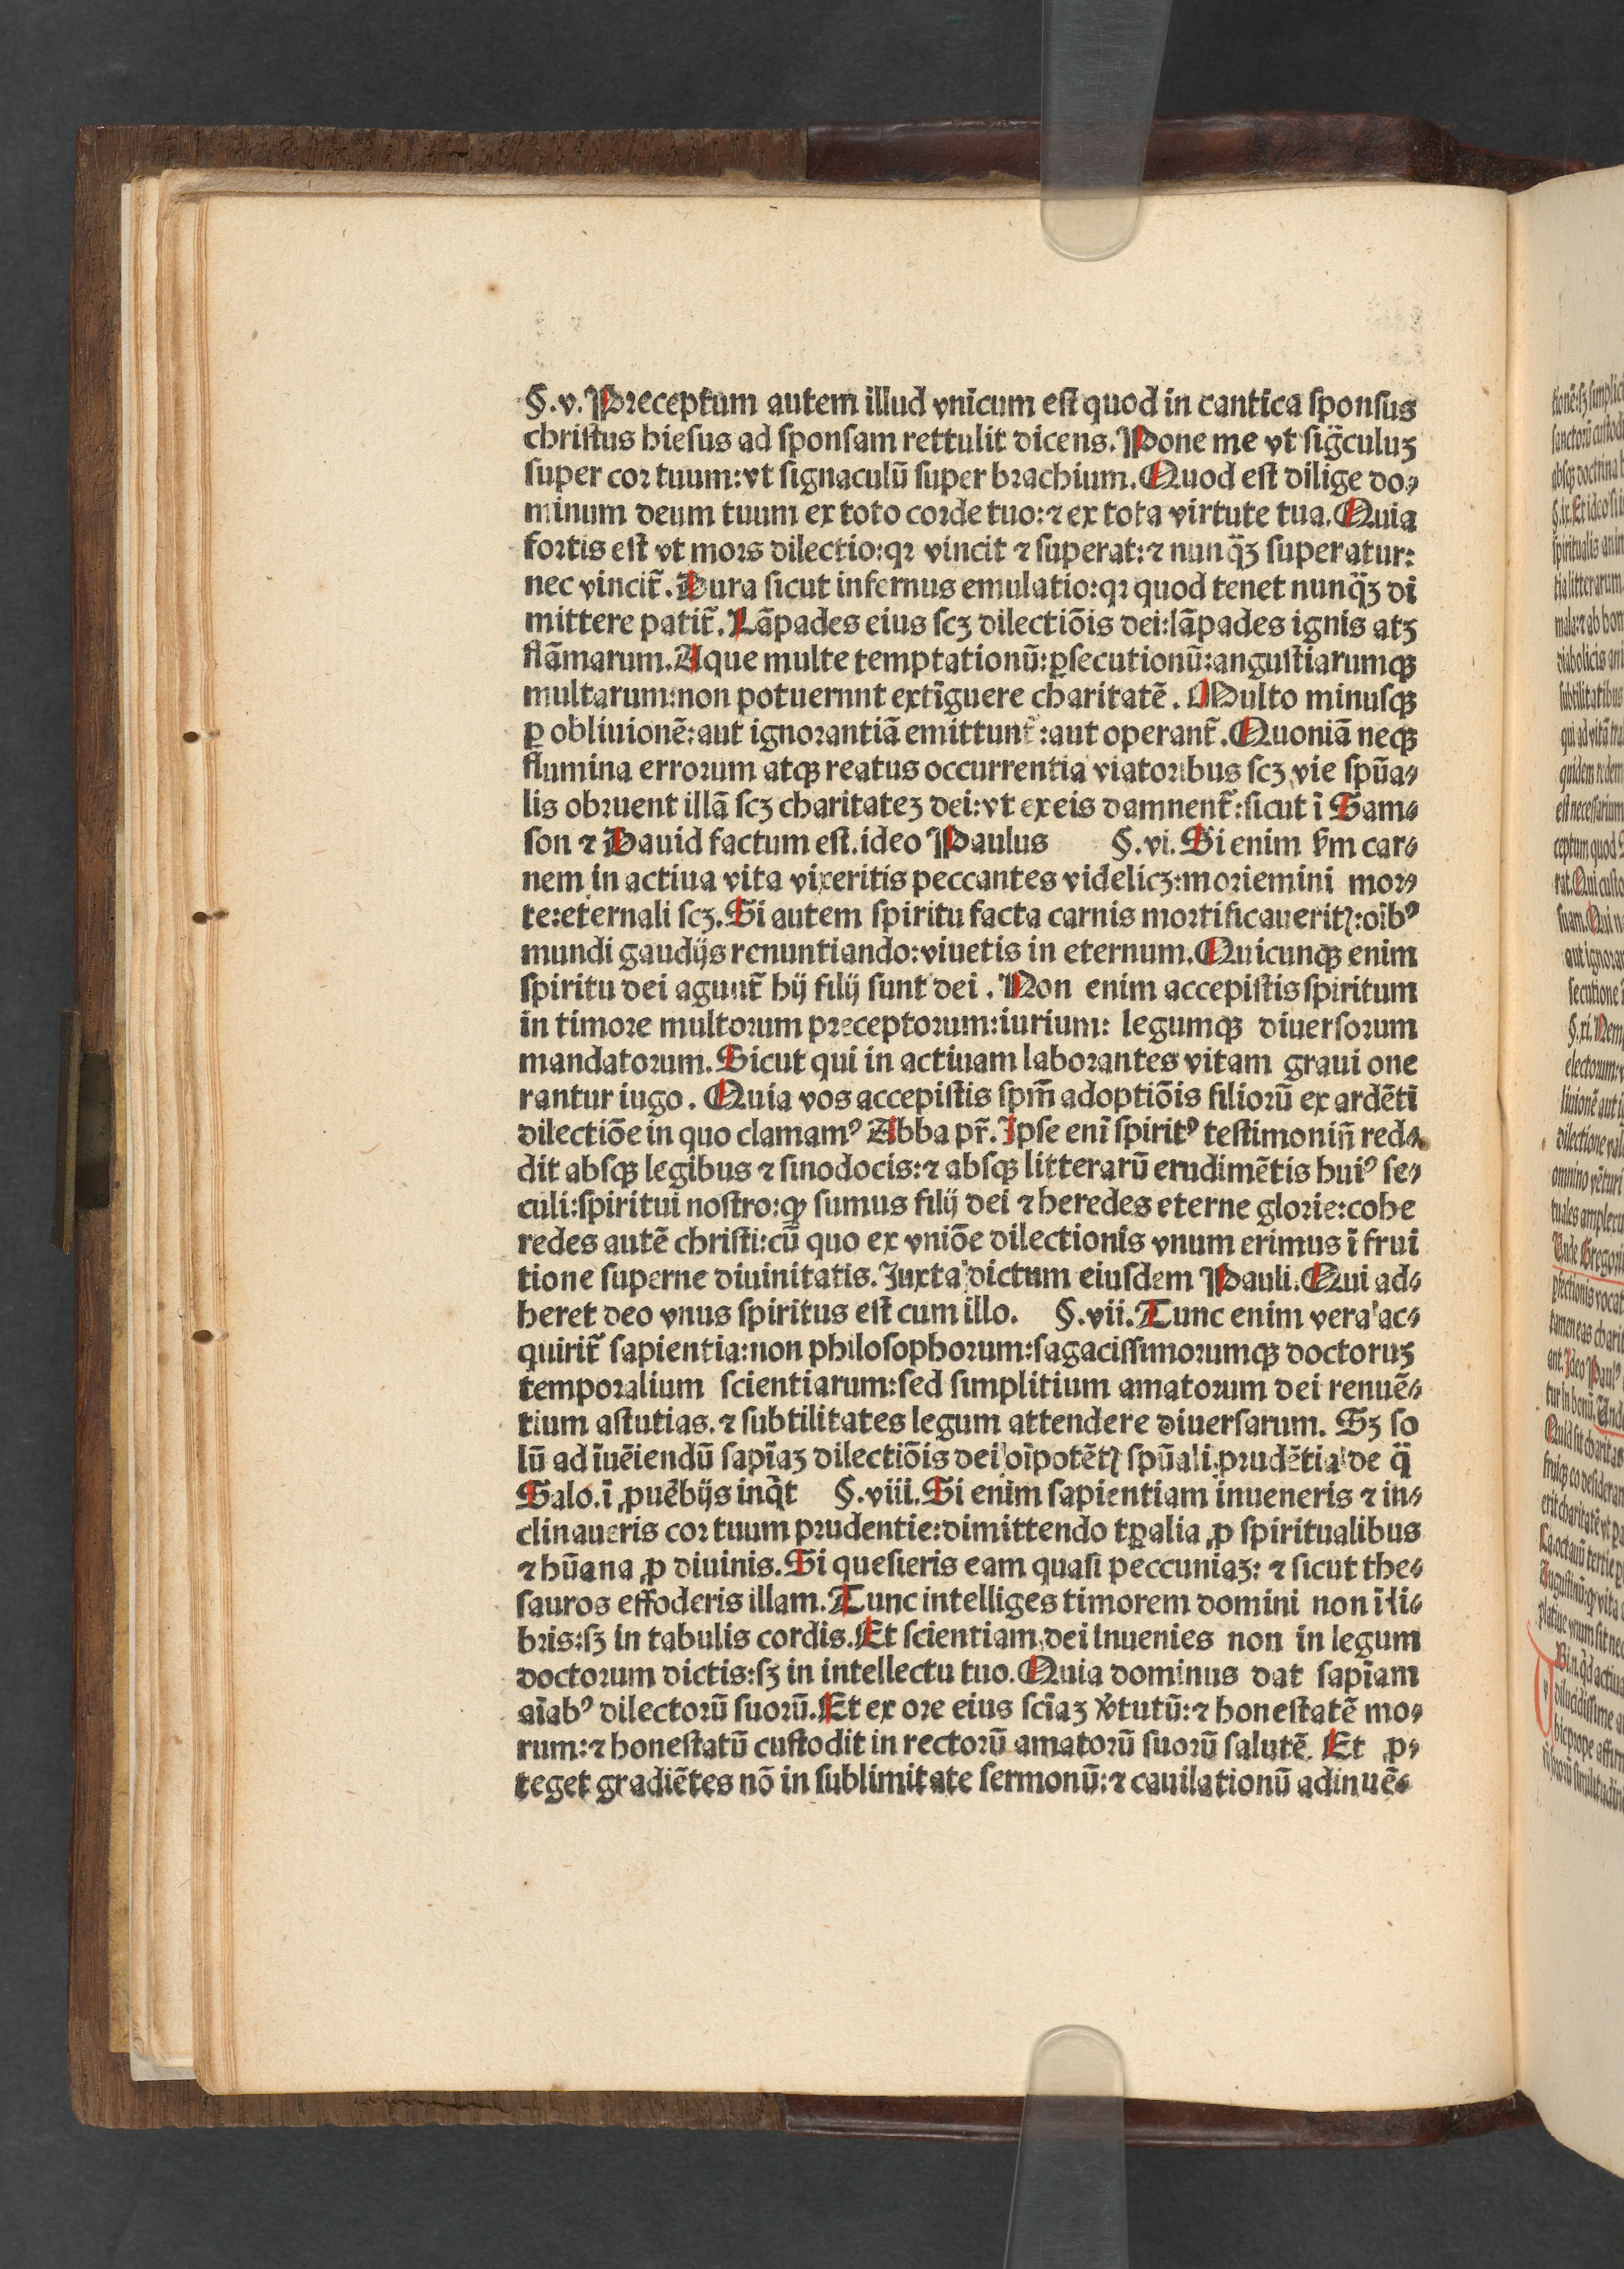 §.v. Preceptum autem illud vnicum est quod in cantica sponsus
christus hiesus ad sponsam rettulit dicens. Pone me vt sig̈culuʒ
super cor tuum: vt signaculū super brachium. Quod est dilige do⸗
minum deum tuum ex toto corde tuo: ⁊ ex tota virtute tua. Quia
fortis est vt mors dilectio: qꝛ vincit ⁊ superat: ⁊ nunq̈ʒ superatur:
nec vincit᷑. Dura sicut infernus emulatio: qꝛ quod tenet nunq̈ʒ di
mittere patit᷑. Lāpades eius scʒ dilectiōis dei: lāpades ignis atʒ
flāmarum. Aque multe temptationū: ꝑsecutionū: angustiarumqꝫ
multarum: non potuernnt extīguere charitatē. Multo minusqꝫ
ꝑ obliuionē: aut ignorantiā emittunt᷑: aut operant᷑. Quoniā neqꝫ
flumina errorum atqꝫ reatus occurrentia viatoribus scʒ vie spūa⸗
lis obruent illā scʒ charitateʒ dei: vt ex eis damnent᷑: sicut ī Sam⸗
son ⁊ Dauid factum est. ideo Paulus §.vi. Si enim ẜm car⸗
nem in actiua vita vixeritis peccantes videlicʒ: moriemini mor⸗
te: eternali scʒ. Si autem spiritu facta carnis mortificaueritꝭ: oībꝰ
mundi gaudijs renuntiando: viuetis in eternum. Quicunqꝫ enim
spiritu dei agunt᷑ hij filij sunt dei. Non enim accepistis spiritum
in timore multorum preceptorum: iurium: legumqꝫ diuersorum
mandatorum. Sicut qui in actiuam laborantes vitam graui one
rantur iugo. Quia vos accepistis spm̄ adoptiōis filiorū ex ardētī
dilectiōe in quo clamamꝰ Abba pr̄. Ipse enī spiritꝰ testimoniū red⸗
dit absqꝫ legibus ⁊ sinodocis: ⁊ absqꝫ litterarū erudimētis huiꝰ se⸗
culi: spiritui nostro: ꝙ sumus filij dei ⁊ heredes eterne glorie: cohe
redes autē christi: cū quo ex vniōe dilectionis vnum erimus ī frui
tione superne diuinitatis. Juxta dictum eiusdem Pauli. Qui ad⸗
heret deo vnus spiritus est cum illo. §.vii. Tunc enim vera ac⸗
quirit᷑ sapientia: non philosophorum: sagacissimorumqꝫ doctoruʒ
temporalium scientiarum: sed simplitium amatorum dei renuē⸗
tium astutias. ⁊ subtilitates legum attendere diuersarum. Sʒ so
lū ad īuēiendū sapīaʒ dilectiōis dei oīpotētꝭ spūali prudētia de q̈
Salo. ī ꝓuēbijs inq̄t §.viii. Si enim sapientiam inueneris ⁊ in⸗
clinaueris cor tuum prudentie: dimittendo tꝑalia ꝓ spiritualibus
⁊ hūana ꝓ diuinis. Si quesieris eam quasi peccuniaʒ: ⁊ sicut the⸗
sauros effoderis illam. Tunc intelliges timorem domini non ī li⸗
bris: sʒ in tabulis cordis. Et scientiam dei inuenies non in legum
doctorum dictis: sʒ in intellectu tuo. Quia dominus dat sapīam
aīabꝰ dilectorū suorū. Et ex ore eius scīaʒ v̓tutū: ⁊ honestatē mo⸗
rum: ⁊ honestatū custodit in rectorū amatorū suorū salutē. Et ꝓ⸗
teget gradiētes nō in sublimitate sermonū: ⁊ cauilationū adinuē⸗